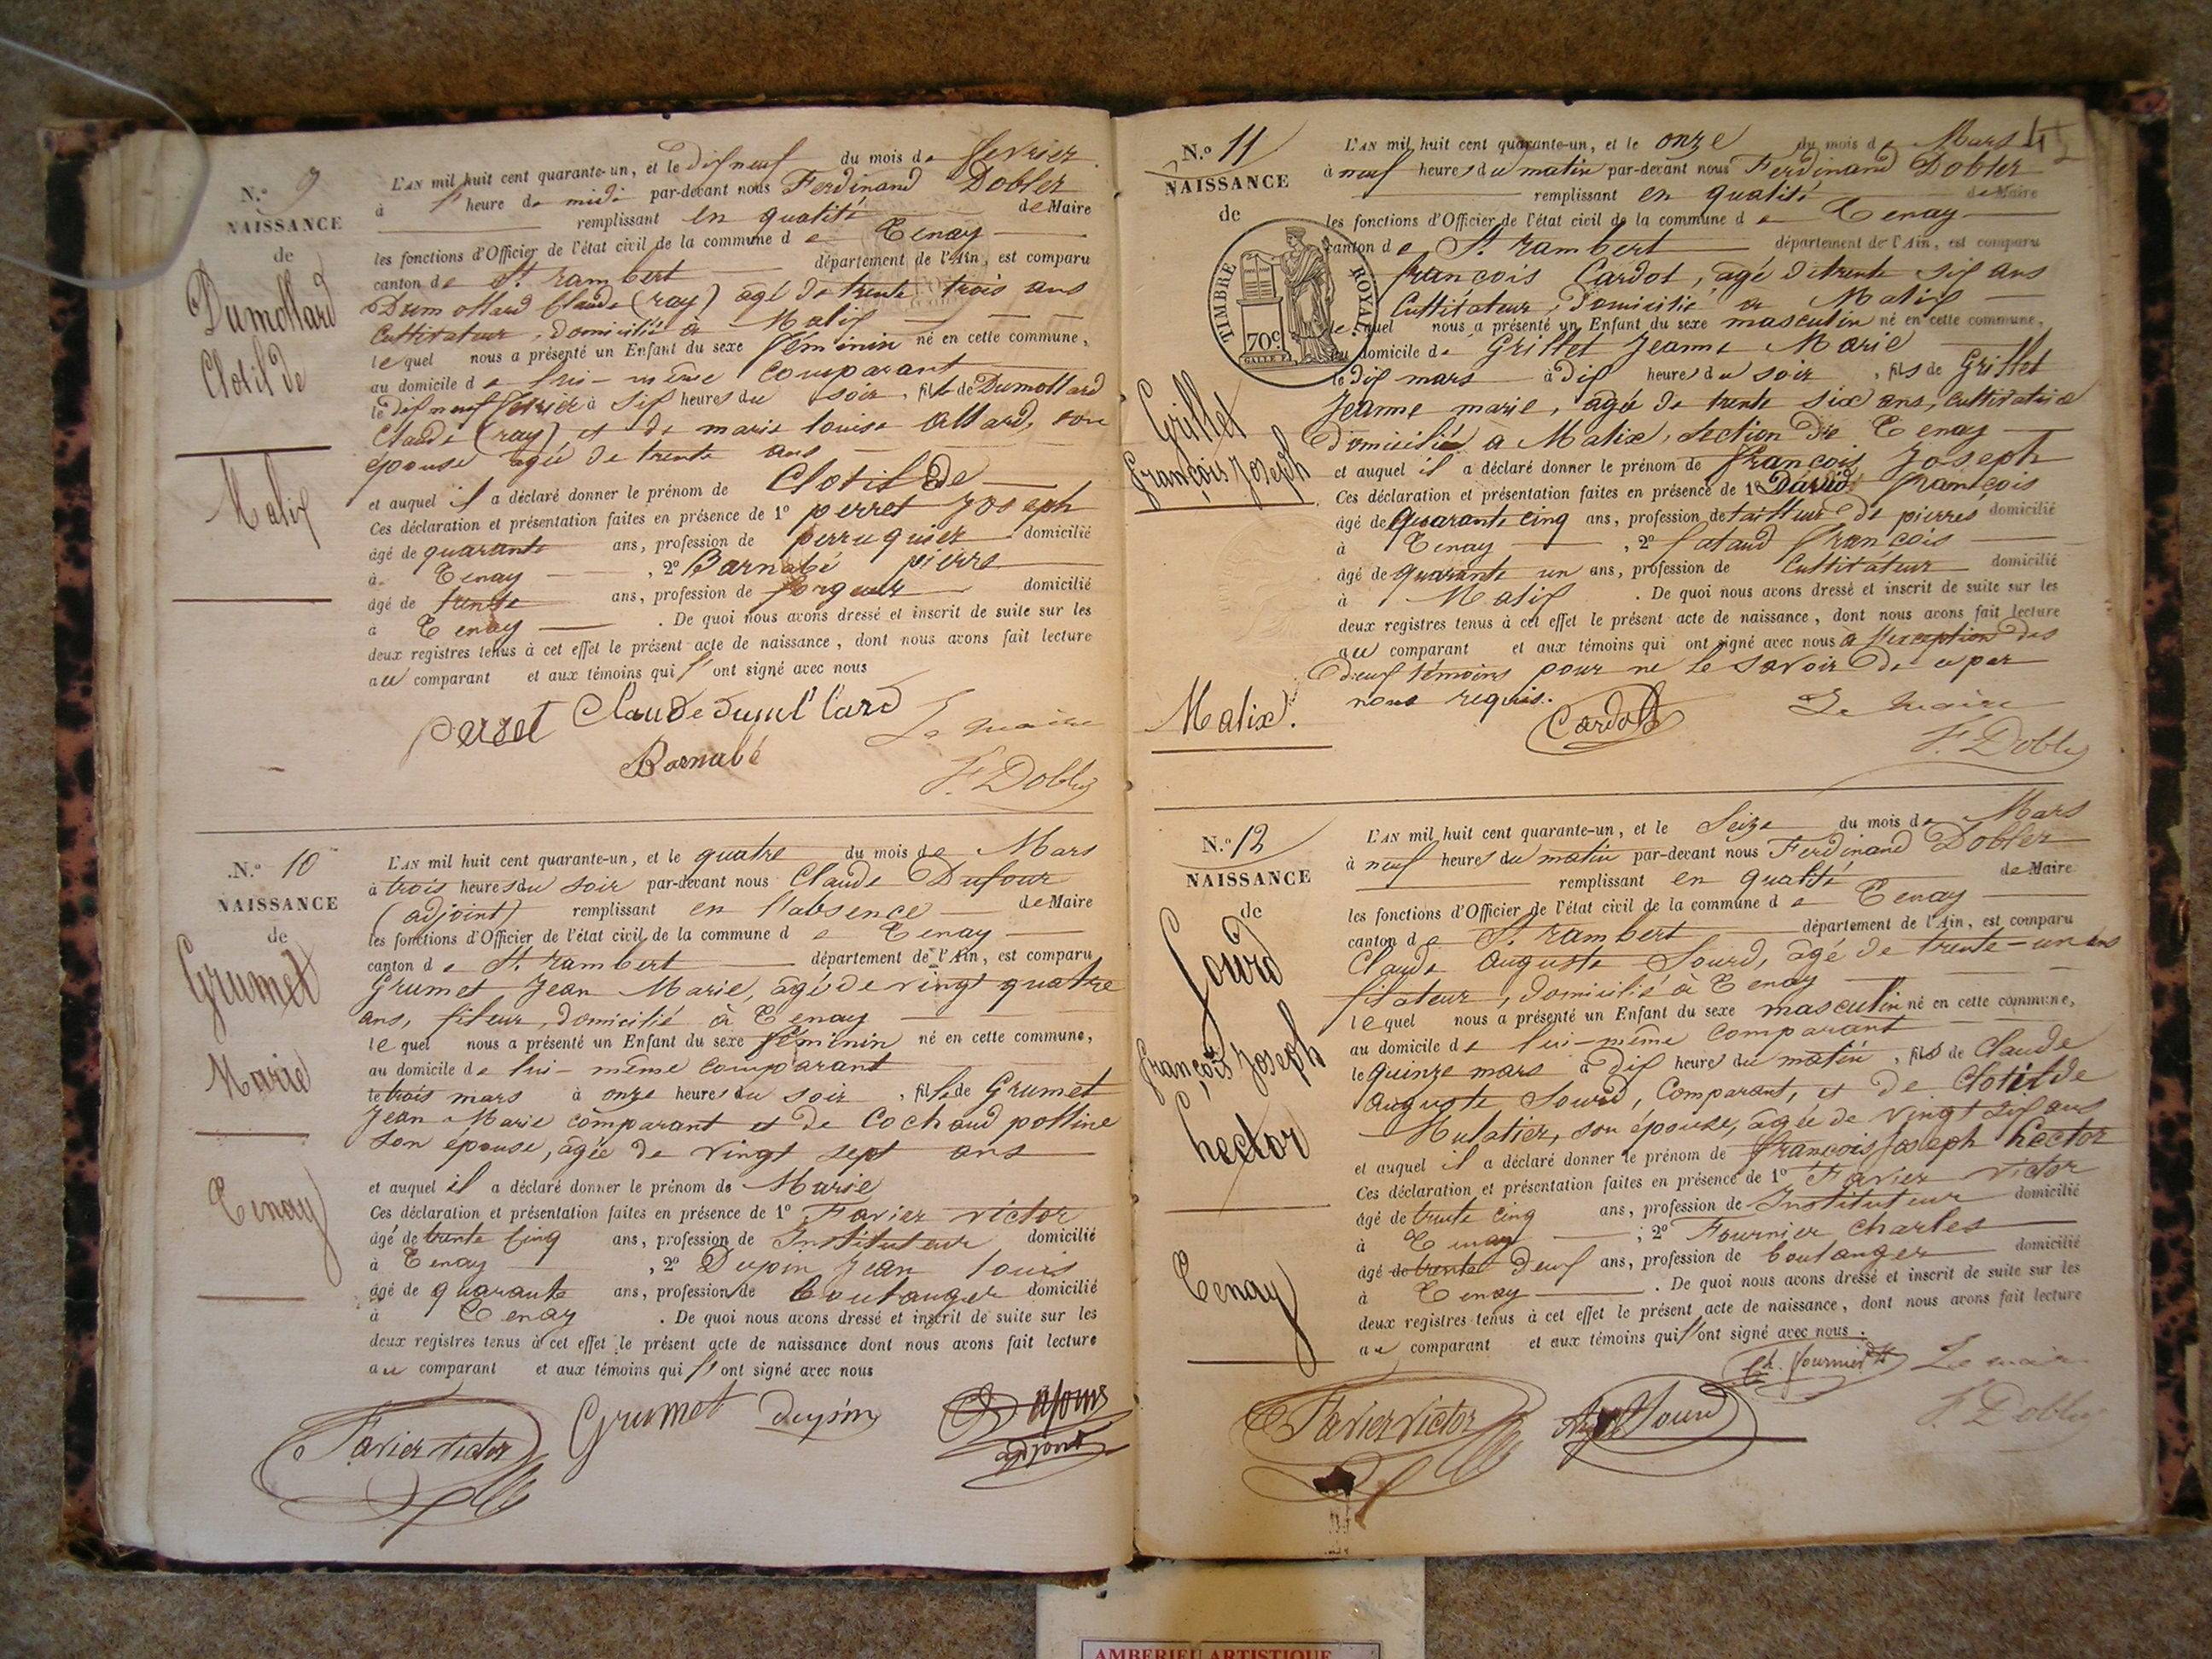 N.º 9
NAISSANCE
de
Dumollard
Clotilde
Malix
L'AN mil huit cent quarante-un, et le dix neuf du mois de fevrier
à 1' heure de midi par-devant nous Ferdinand Dobler
remplissant en qualité de Maire
les fonctions d'Officier de l'état civil de la commune d e Tenay
canton de St. rambert département de l'Ain, est comparu
Dumollard Claude (ray) agé de trente trois ans
Cultivateur, domicilié à Malix
lequel nous a présenté un Enfant du sexe féminin né en cette commune,
au domicile de lui-même comparant
le dix neuf fevrier à six heures du soir, fille de Dumollard
Claude (ray), et de marie louise allard, son
épouse agée de trente ans
et auquel il a déclaré donner le prénom de Clotilde
Ces déclaration et présentation faites en présence de 1º perret Joseph
âgé de quarante ans, profession de perruquier domicilié
à Tenay, 2º Barnabé pierre
âgé de trente ans, profession de domicilié
à Tenay. De quoi nous avons dressé et inscrit de suite sur les
deux registres tenus à cet effet le présent acte de naissance, dont nous avons fait lecture
au comparant et aux témoins qui l'ont signé avec nous
perret Claude dumollard Le maire
Barnabé F. Dobler
N.º 10
NAISSANCE
de
Grumet
Marie
Tenay
L'AN mil huit cent quarante-un, et le quatre du mois de Mars
à trois heures du soir par-devant nous Claude Dufour
(adjoint) remplissant en l'absence de Maire
les fonctions d'Officier de l'état civil de la commune d e Tenay
canton de St. rambert département de l'Ain, est comparu
Grumet Jean Marie, agé de vingt quatre
ans, fileur, domicilié à Tenay
lequel nous a présenté un Enfant du sexe féminin né en cette commune,
au domicile de lui-même comparant
le trois mars à onze heures du soir, fille de Grumet
Jean Marie comparant et de Cochaud polline
son épouse, agée de vingt sept ans
et auquel il a déclaré donner le prénom de Marie
Ces déclaration et présentation faites en présence de 1º Favier victor
âgé de trente cinq ans, profession de Instituteur domicilié
à Tenay, 2º Dupin Jean louis
âgé de quarante ans, profession de boulanger domicilié
à Tenay. De quoi nous avons dressé et inscrit de suite sur les
deux registres tenus à cet effet le présent acte de naissance dont nous avons fait lecture
au comparant et aux témoins qui l'ont signé avec nous
Favier victor Grumet dupin Dufour
adjoint
N.º 11
NAISSANCE
de
TIMBRE ROYAL
70c
Grillet
françois Joseph
Malix.
L'AN mil huit cent quarante-un, et le onze du mois de Mars
à neuf heures du matin par-devant nous Ferdinand Dobler
remplissant en qualité de Maire
les fonctions d'Officier de l'état civil de la commune d e Tenay
canton de St. rambert département de l'Ain, est comparu
francois Cardot, agé de trente six ans
Cultivateur, domicilié à Malix
lequel nous a présenté un Enfant du sexe masculin né en cette commune,
au domicile de Grillet Jeanne Marie
le dix mars à dix heures du soir, fils de Grillet
Jeanne marie, agée de trente six ans, cultivatrice
domiciliée à Malix, section de Tenay
et auquel il a déclaré donner le prénom de françois Joseph
Ces déclaration et présentation faites en présence de 1º David françois
âgé de quarante cinq ans, profession de tailleur de pierres domicilié
à Tenay, 2º françois
âgé de quarante un ans, profession de Cultivateur domicilié
à Malix. De quoi nous avons dressé et inscrit de suite sur les
deux registres tenus à cet effet le présent acte de naissance, dont nous avons fait lecture
au comparant et aux témoins qui ont signé avec nous a l'exception des
deux témoins pour ne le savoir de ce par
nous requis.
Cardot Le maire
F. Dobler
N.º 12
NAISSANCE
de
Sourd
françois Joseph
hector
Tenay
L'AN mil huit cent quarante-un, et le Seize du mois de Mars
à neuf heures du matin par-devant nous Ferdinand Dobler
remplissant en qualité de Maire
les fonctions d'Officier de l'état civil de la commune d e Tenay
canton de St. rambert département de l'Ain, est comparu
Claude Auguste Sourd, agé de trente-un ans
filateur, domicilié à Tenay
lequel nous a présenté un Enfant du sexe masculin né en cette commune,
au domicile de lui-même comparant
le quinze mars à dix heures du matin, fils de Claude
Auguste Sourd, Comparant, et de Clotilde
Mulatier, son épouse, agée de vingt six ans
et auquel il a déclaré donner le prénom de françois Joseph hector
Ces déclaration et présentation faites en présence de 1º Favier victor
âgé de trente cinq ans, profession de Instituteur domicilié
à Tenay; 2º Fournier Charles
âgé de trente deux ans, profession de boulanger domicilié
à Tenay. De quoi nous avons dressé et inscrit de suite sur les
deux registres tenus à cet effet le présent acte de naissance, dont nous avons fait lecture
au comparant et aux témoins qui l'ont signé avec nous.
Ch. fournier Le maire
Favier victor Aug Sourd F. Dobler
AMBERIEU ARTISTIQUE